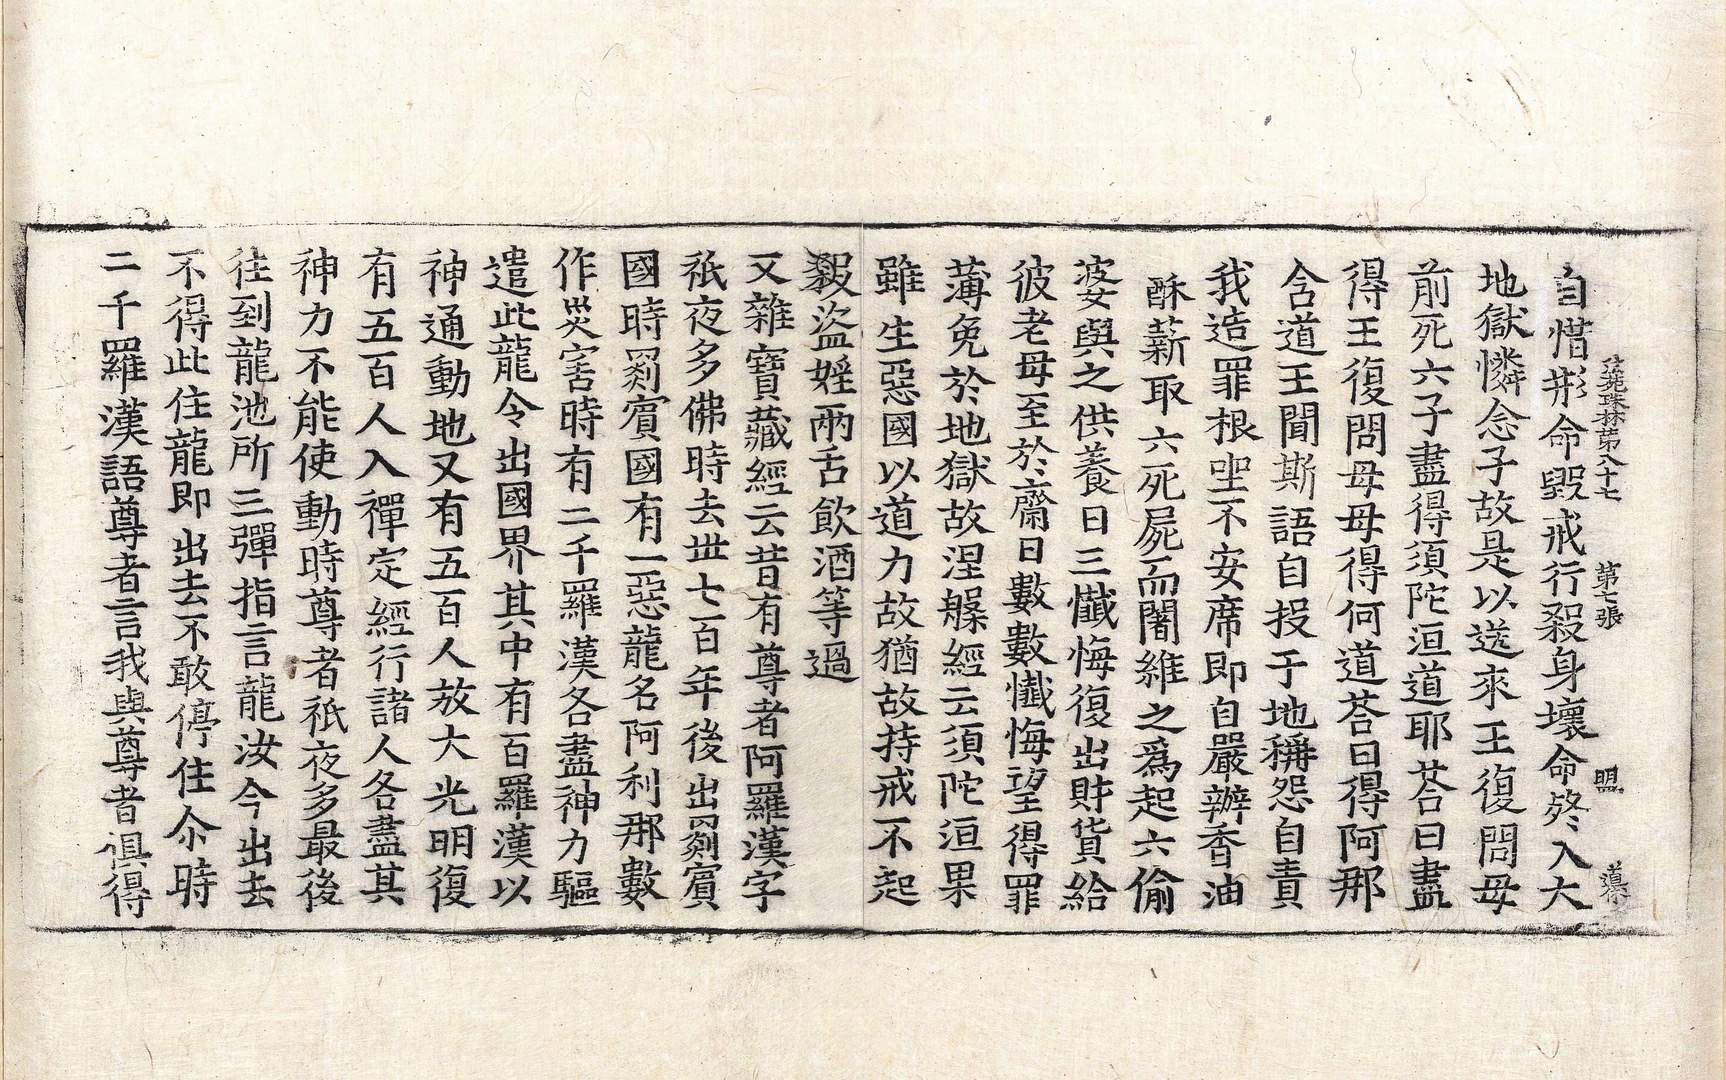 法苑珠林第八十七 第七張 盟
自惜形命毀戒行殺身壞命終入大
地獄憐念子故是以送來王復問母
前死六子盡得須陀洹道耶荅曰盡
得王復問母母得何道荅曰得阿那
含道王聞斯語自投于地稱怨自責
我造罪根坐不安席即自嚴辦香油
酥薪取六死屍而闍維之爲起六偷
婆與之供養日三懺悔復出財貨給
彼老母至於齋日數數懺悔望得罪
薄免於地獄故涅槃經云須陀洹果
雖生惡國以道力故猶故持戒不起
殺盜婬兩舌飮酒等過
又雜寶藏經云昔有尊者阿羅漢字
祇夜多佛時去世七百年後出罽賓
國時罽賓國有一惡龍名阿利那數
作災害時有二千羅漢各盡神力驅
遣此龍令出國界其中有百羅漢以
神通動地又有五百人放大光明復
有五百人入禪定經行諸人各盡其
神力不能使動時尊者祇夜多最後
往到龍池所三彈指言龍汝今出去
不得此住龍即出去不敢停住尒時
二千羅漢語尊者言我與尊者俱得